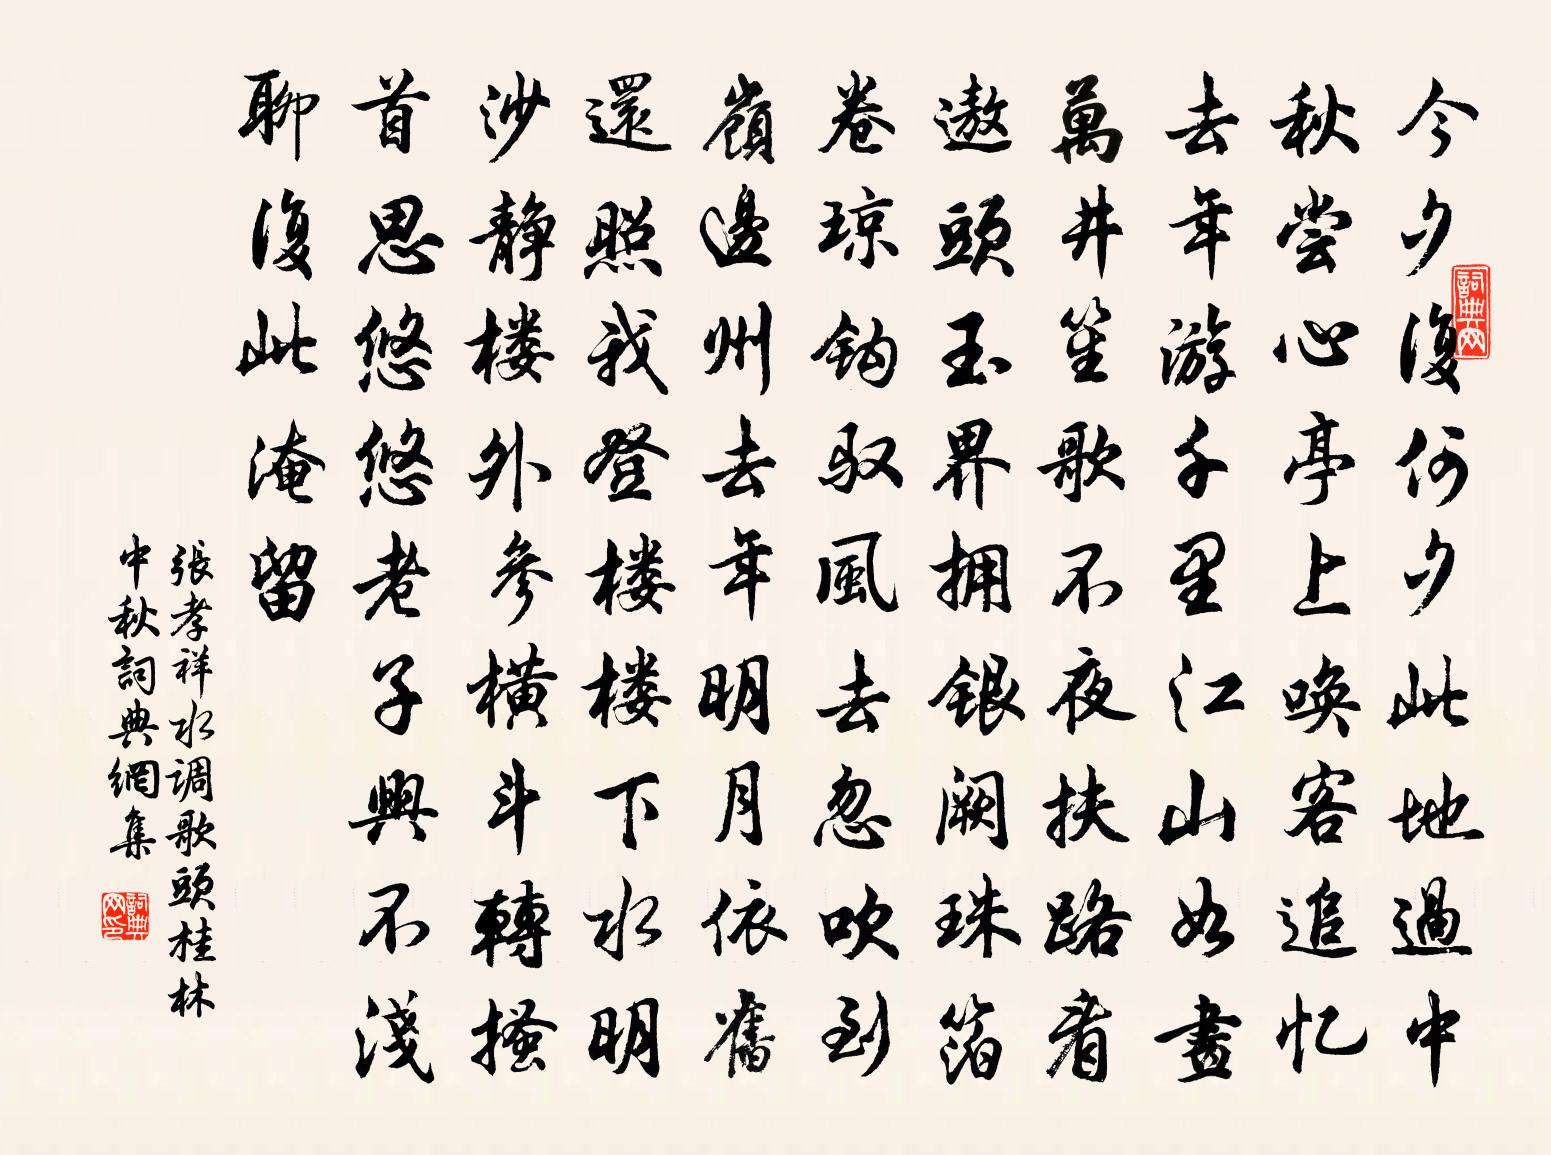 今夕復何夕此地過中
秋尝心亭上唤客追忆
去年游千里江山如畫
萬井笙歌不夜扶路看
遨頭玉界拥銀阙珠箔
卷琼鈎驭風去忽吹到
嶺邊州去年明月依舊
還照我登楼楼下水明
沙静楼外參横斗轉搔
首思悠悠老子興不淺
聊復此淹留
張孝祥水调歌頭桂林
中秋詞典網集
詞典网
詞典网印